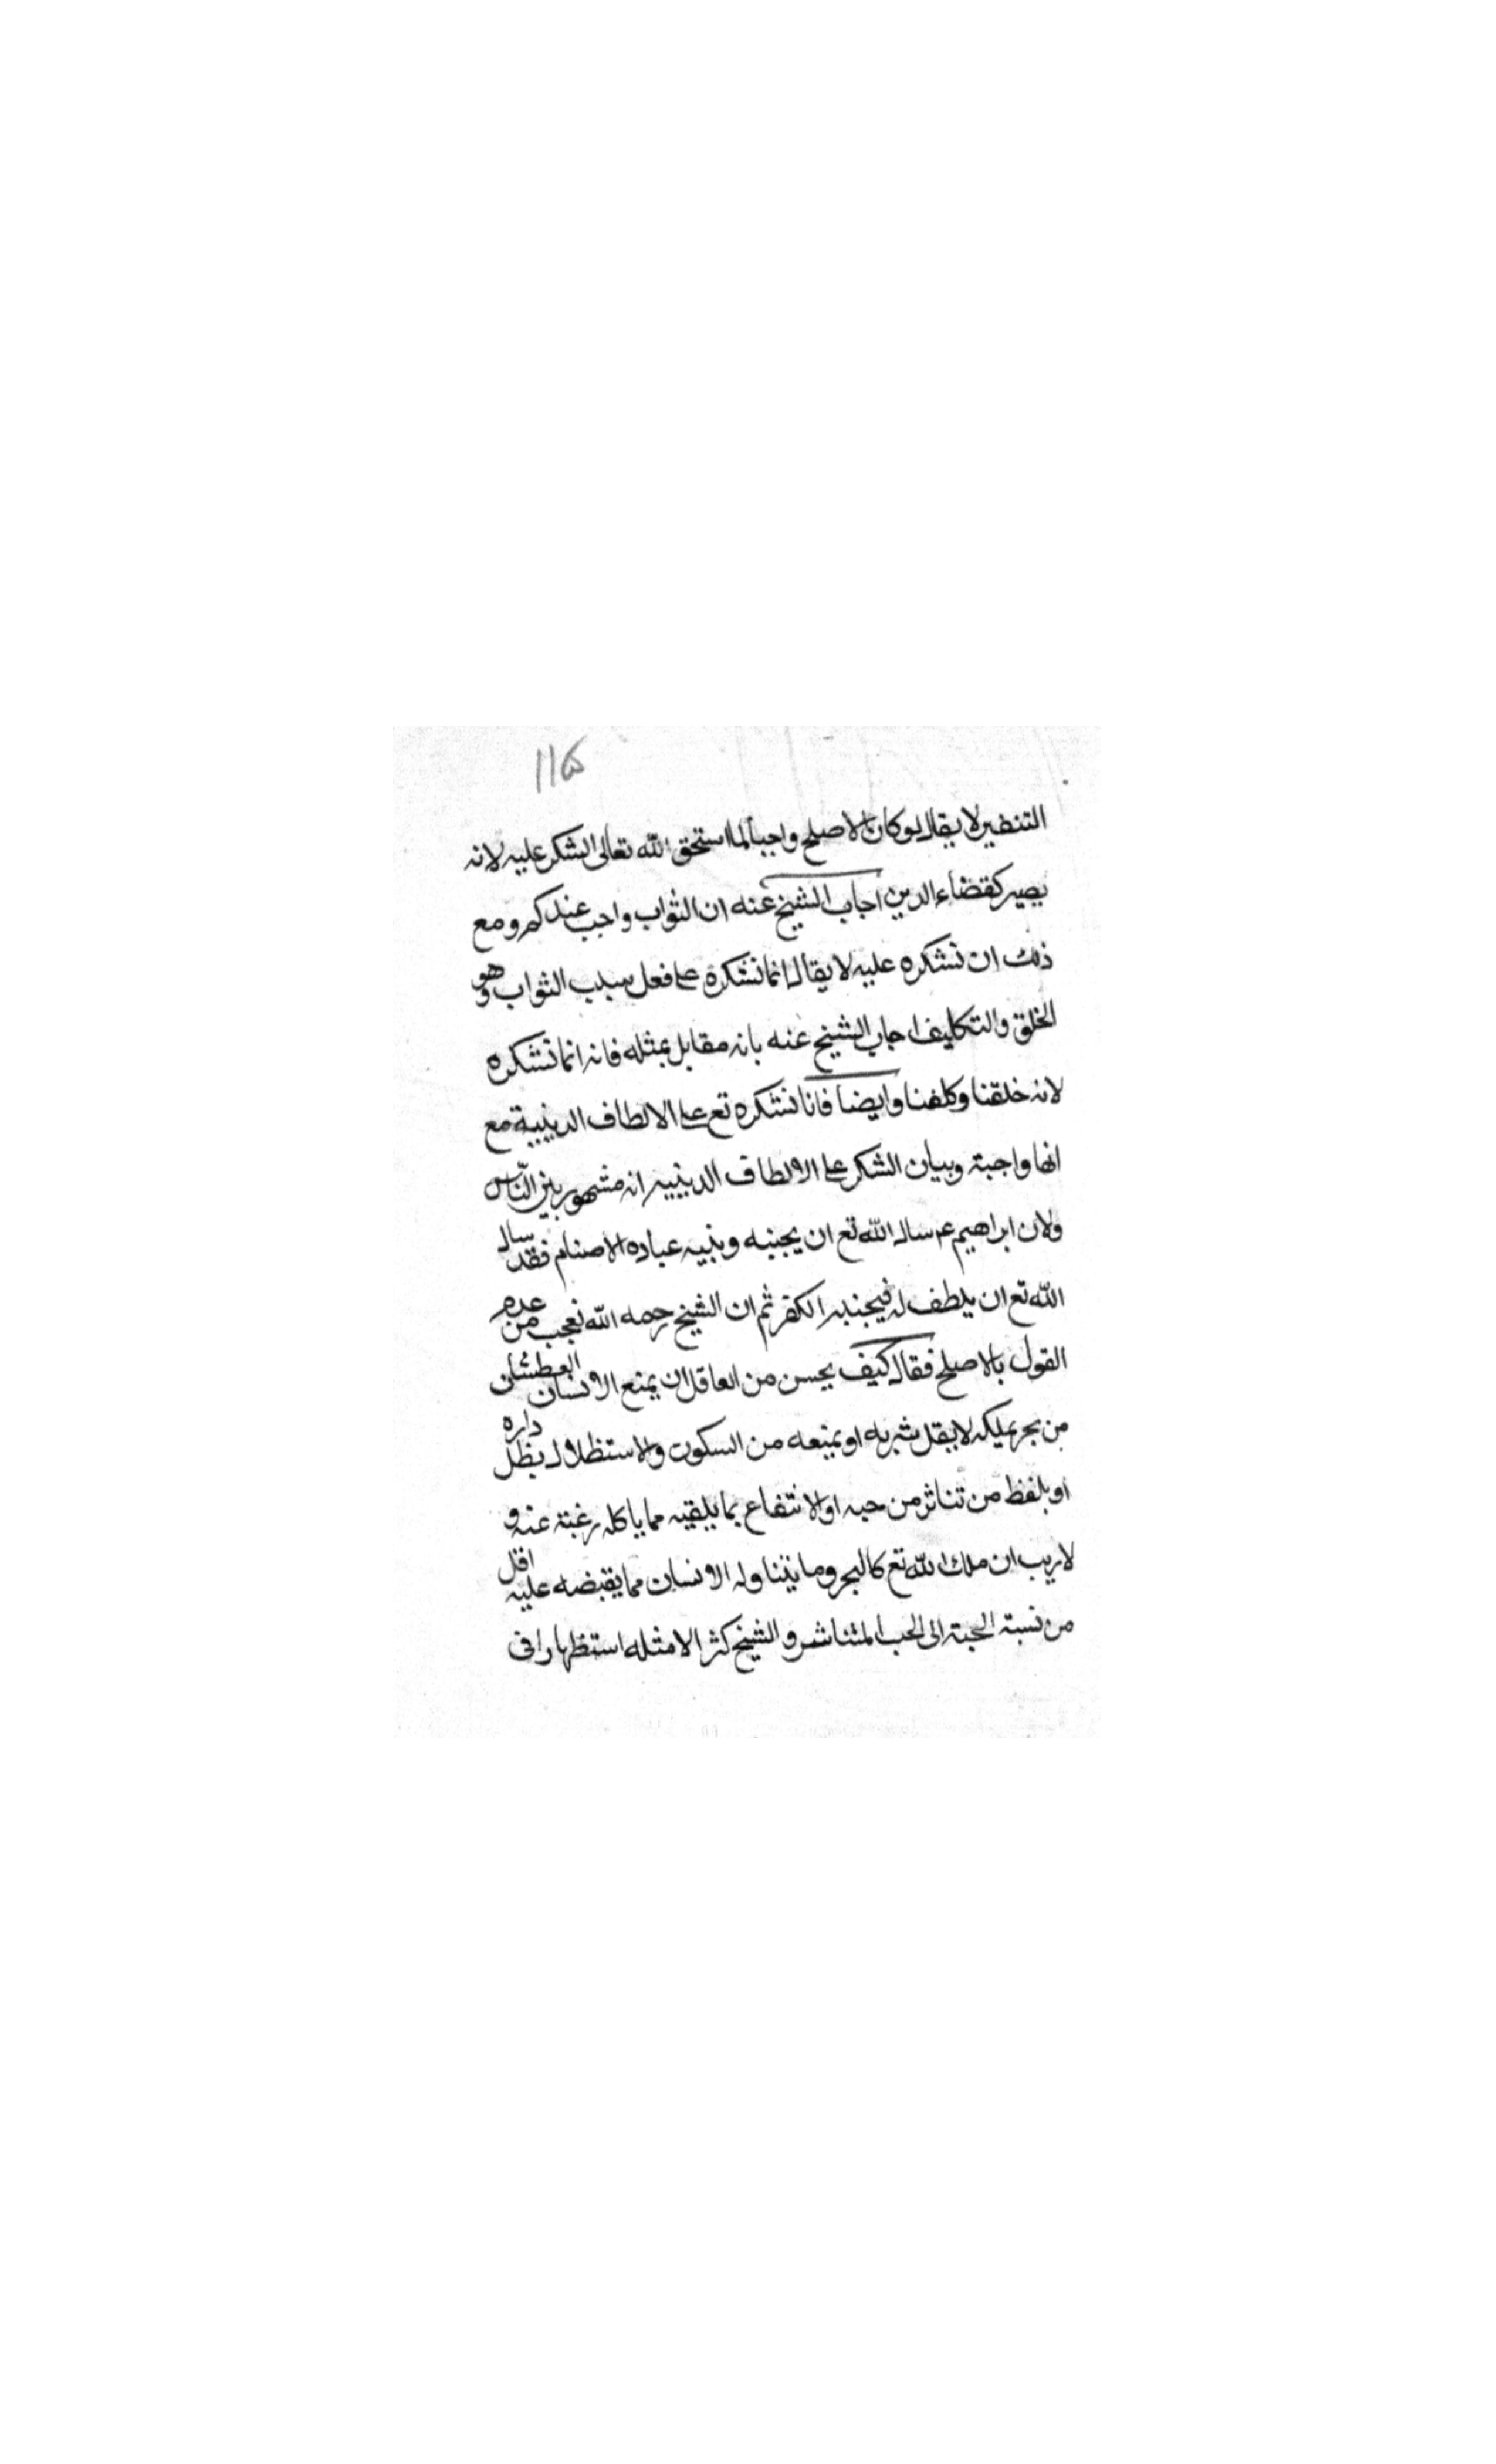 ١١۵
التنفير لا يقال لو كان الاصلح واجبا لما استحق الله تعالى الشكر عليه لانه
يصير كقضاء الدين اجاب الشيخ عنه ان الثواب واجب عندكم ومع
ذلك ان نشكره عليه لا يقال انما نشكره على فعل سبب الثواب وهو
الخلق والتكليف اجاب الشيخ عنه بانه مقابل بمثله فانه انما نشكره
لانه خلقنا وكلفنا وايضا فانا نشكره تع على الالطاف الدينية مع
انها واجبة وبيان الشكر على الالطاف الدينيه انه مشهور بين النّاس
ولان ابراهيم ع سال الله تع ان يجنبه وبنيه عباده الاصنام فقد سال
الله تع ان يلطف له فيجنبه الكفر ثم ان الشيخ رحمه الله تعجب من عدم
القول بالاصلح فقال كيف يحسن من العاقل ان يمنع الانسان العطشان
من بحر يملكه لا يقل شربه او يمنعه من السكون والاستظلال بظل داره
او بلفظ من تناثر من حبه او الانتفاع بما يلقيه مما ياكله رغبة عنه و
لا ريب ان ملك الله تع كالبحر وما يتناوله الانسان مما يقبضه عليه اقل
من نسبة الحبة الى الحب المتناثر والشيخ كثر الامثله استظهارا فى